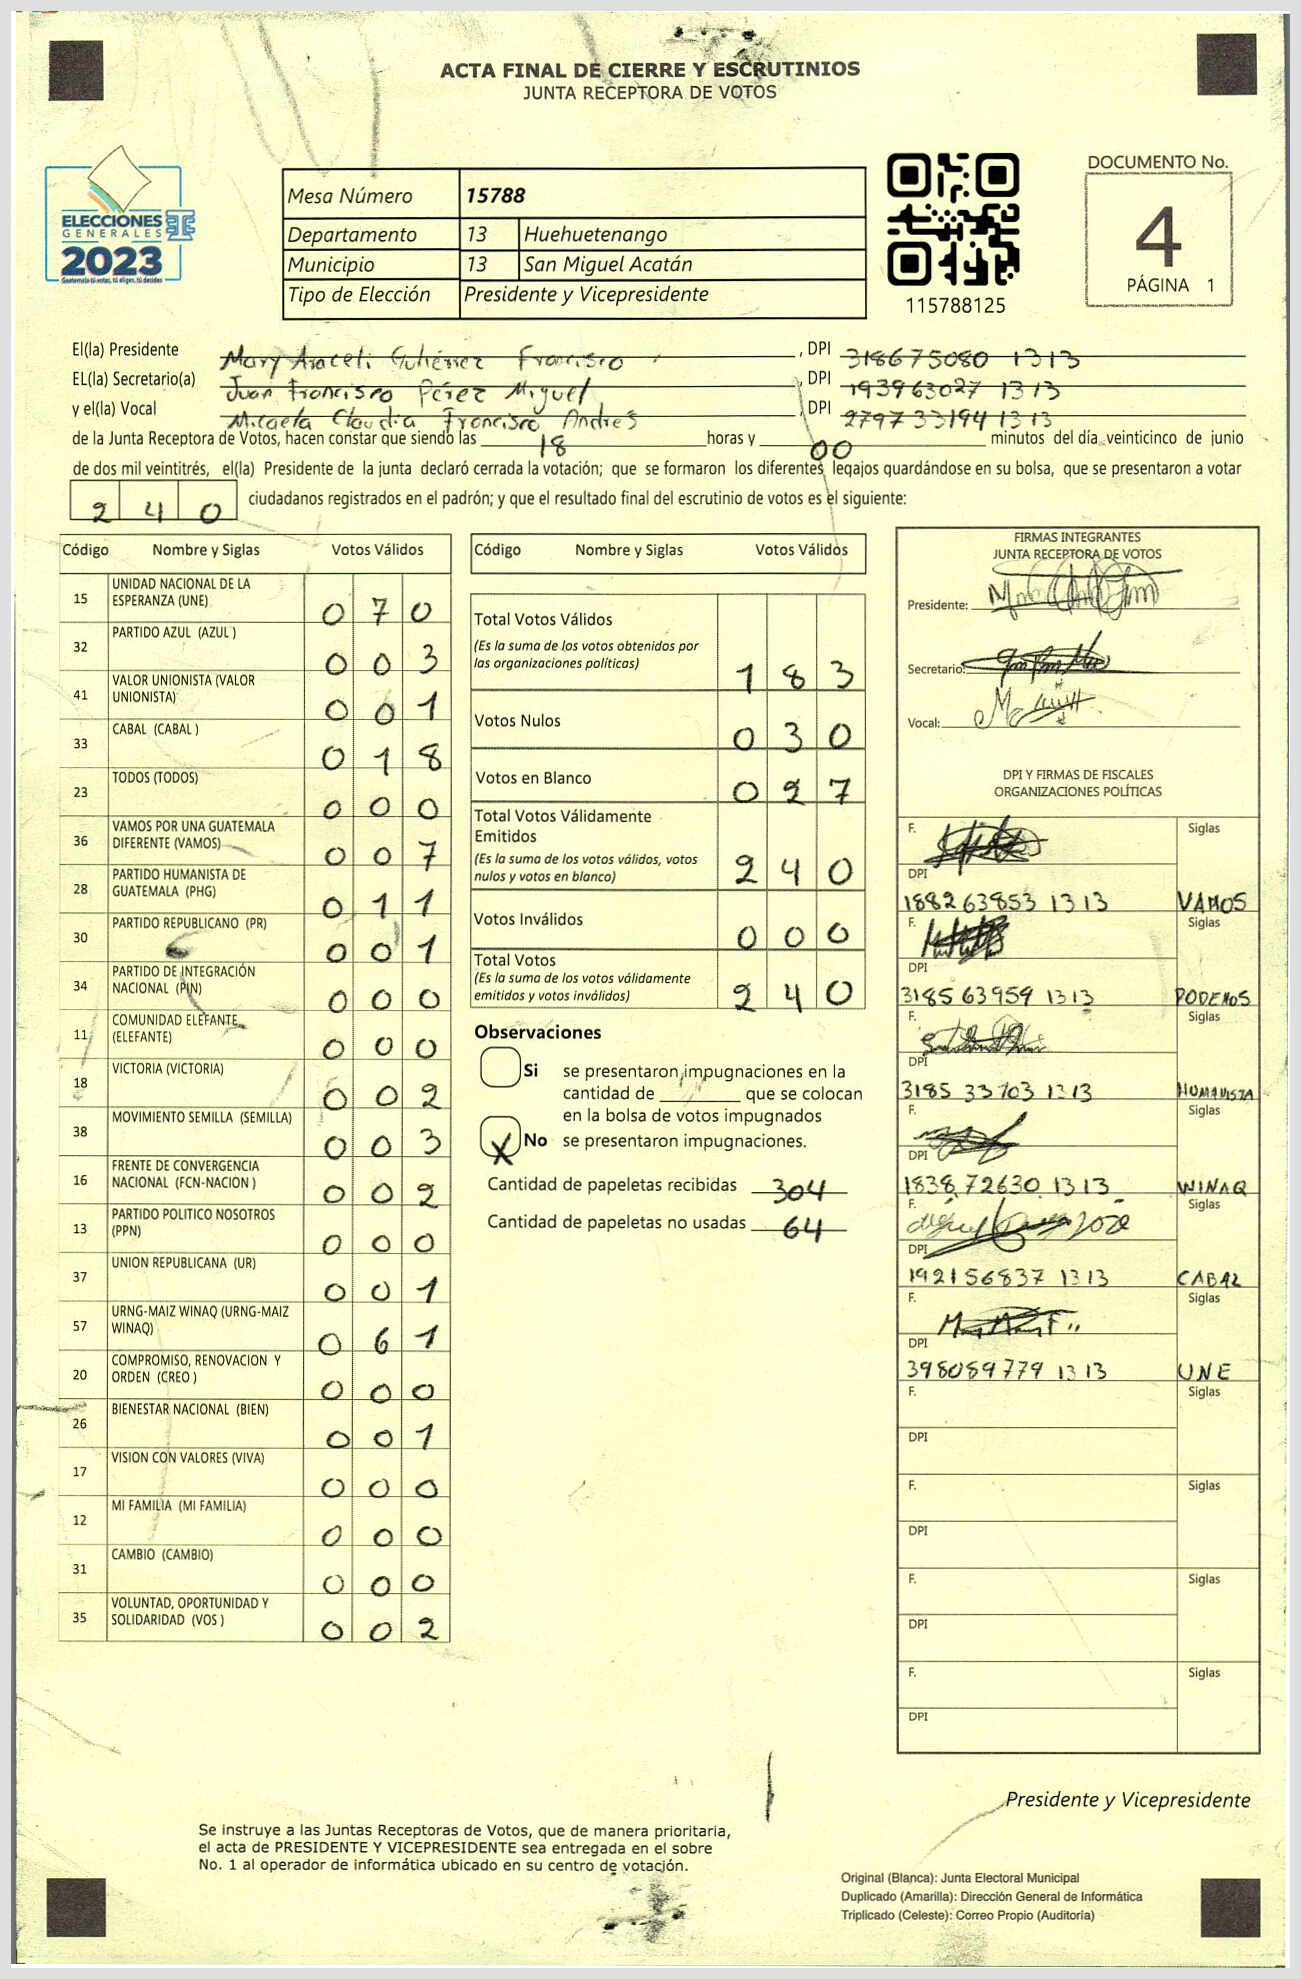 ACTA FINAL DE CIERRE Y ESCRUTINIOS
JUNTA RECEPTORA DE VOTOS
ELECCIONES
GENERALES
2023
Guatemala tú votas, tú eliges, tú decides
Mesa Número 15788
Departamento 13 Huehuetenango
Municipio 13 San Miguel Acatán
Tipo de Elección Presidente y Vicepresidente
115788125
DOCUMENTO No.
4
PÁGINA 1
El(la) Presidente Mary Araceli Gutiérrez Francisco , DPI 318675080 1313
EL(la) Secretario(a) Juan Francisco Pérez Miguel , DPI 193963027 1313
y el(la) Vocal Micaela Claudia Francisco Andrés , DPI 279733194 1313
de la Junta Receptora de Votos, hacen constar que siendo las 18 horas y 00 minutos del día veinticinco de junio
de dos mil veintitrés, el(la) Presidente de la junta declaró cerrada la votación; que se formaron los diferentes legajos guardándose en su bolsa, que se presentaron a votar
240 ciudadanos registrados en el padrón; y que el resultado final del escrutinio de votos es el siguiente:
Código Nombre y Siglas Votos Válidos
15 UNIDAD NACIONAL DE LA
ESPERANZA (UNE) 070
32 PARTIDO AZUL (AZUL ) 003
41 VALOR UNIONISTA (VALOR
UNIONISTA) 001
33 CABAL (CABAL ) 018
23 TODOS (TODOS) 000
36 VAMOS POR UNA GUATEMALA
DIFERENTE (VAMOS) 007
28 PARTIDO HUMANISTA DE
GUATEMALA (PHG) 011
30 PARTIDO REPUBLICANO (PR) 001
34 PARTIDO DE INTEGRACIÓN
NACIONAL (PIN) 000
11 COMUNIDAD ELEFANTE
(ELEFANTE) 000
18 VICTORIA (VICTORIA) 002
38 MOVIMIENTO SEMILLA (SEMILLA) 003
16 FRENTE DE CONVERGENCIA
NACIONAL (FCN-NACION ) 002
13 PARTIDO POLITICO NOSOTROS
(PPN) 000
37 UNION REPUBLICANA (UR) 001
57 URNG-MAIZ WINAQ (URNG-MAIZ
WINAQ) 061
20 COMPROMISO, RENOVACION Y
ORDEN (CREO ) 000
26 BIENESTAR NACIONAL (BIEN) 001
17 VISION CON VALORES (VIVA) 000
12 MI FAMILIA (MI FAMILIA) 000
31 CAMBIO (CAMBIO) 000
35 VOLUNTAD, OPORTUNIDAD Y
SOLIDARIDAD (VOS ) 002
Código Nombre y Siglas Votos Válidos
Total Votos Válidos
(Es la suma de los votos obtenidos por
las organizaciones políticas) 183
Votos Nulos 030
Votos en Blanco 027
Total Votos Válidamente
Emitidos
(Es la suma de los votos válidos, votos
nulos y votos en blanco) 240
Votos Inválidos 000
Total Votos
(Es la suma de los votos válidamente
emitidos y votos inválidos) 240
Observaciones
Si se presentaron impugnaciones en la
cantidad de ________ que se colocan
en la bolsa de votos impugnados
X No se presentaron impugnaciones.
Cantidad de papeletas recibidas 304
Cantidad de papeletas no usadas 64
FIRMAS INTEGRANTES
JUNTA RECEPTORA DE VOTOS
Presidente:
Secretario:
Vocal:
DPI Y FIRMAS DE FISCALES
ORGANIZACIONES POLÍTICAS
F. Siglas
DPI
188263853 1313 VAMOS
F. Siglas
DPI
318563959 1313 PODEMOS
F. Siglas
DPI
318533703 1313 HUMANISTA
F. Siglas
DPI
183872630 1313 WINAQ
F. Siglas
DPI
192156837 1313 CABAL
F. Siglas
DPI
398089779 1313 UNE
F. Siglas
DPI
F. Siglas
DPI
F. Siglas
DPI
F. Siglas
DPI
Presidente y Vicepresidente
Se instruye a las Juntas Receptoras de Votos, que de manera prioritaria,
el acta de PRESIDENTE Y VICEPRESIDENTE sea entregada en el sobre
No. 1 al operador de informática ubicado en su centro de votación.
Original (Blanca): Junta Electoral Municipal
Duplicado (Amarilla): Dirección General de Informática
Triplicado (Celeste): Correo Propio (Auditoría)